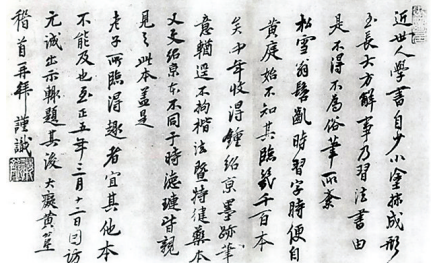 近世人學書自少小塗抹成形
至長大方解事乃習法書由
是不得不為俗筆所紊
松雪翁髫齔時習字時便自
黃庭始不知其臨幾千百本
矣中年收得鍾紹京墨跡筆
意輶逕不拘楷法暨特健藥本
又是紹京不同于時憑璉皆親
見之此本蓋是
老子所臨得趣者宜其他本
不能及也至正五年三月十二日因訪
元誠出示輒題其後大癡黃
稽首再拜謹識